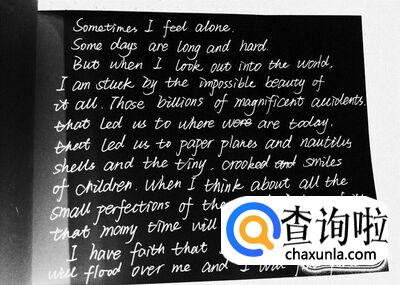 Sometimes I feel alone.
Some days are long and hard.
But when I look out into the world,
I am stuck by the impossible beauty of
it all. Those billions of magnificent accidents.
that led us to where were are today.
that led us to paper planes and nautilus
shells and the tiny, crooked and smiles
of children. When I think about all the
small perfections of the
that mamy time will
I have faith that
will flood over me and I
查询啦
chaxunla.com